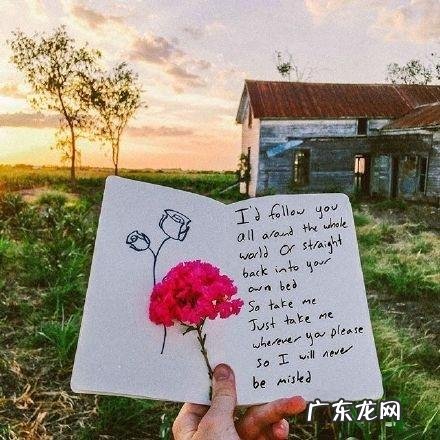 I'd follow you
all around the whole
world Or straight
back into your
own bed
So take me
Just take me
wherever you please
so I will never
be misled
广东龙网